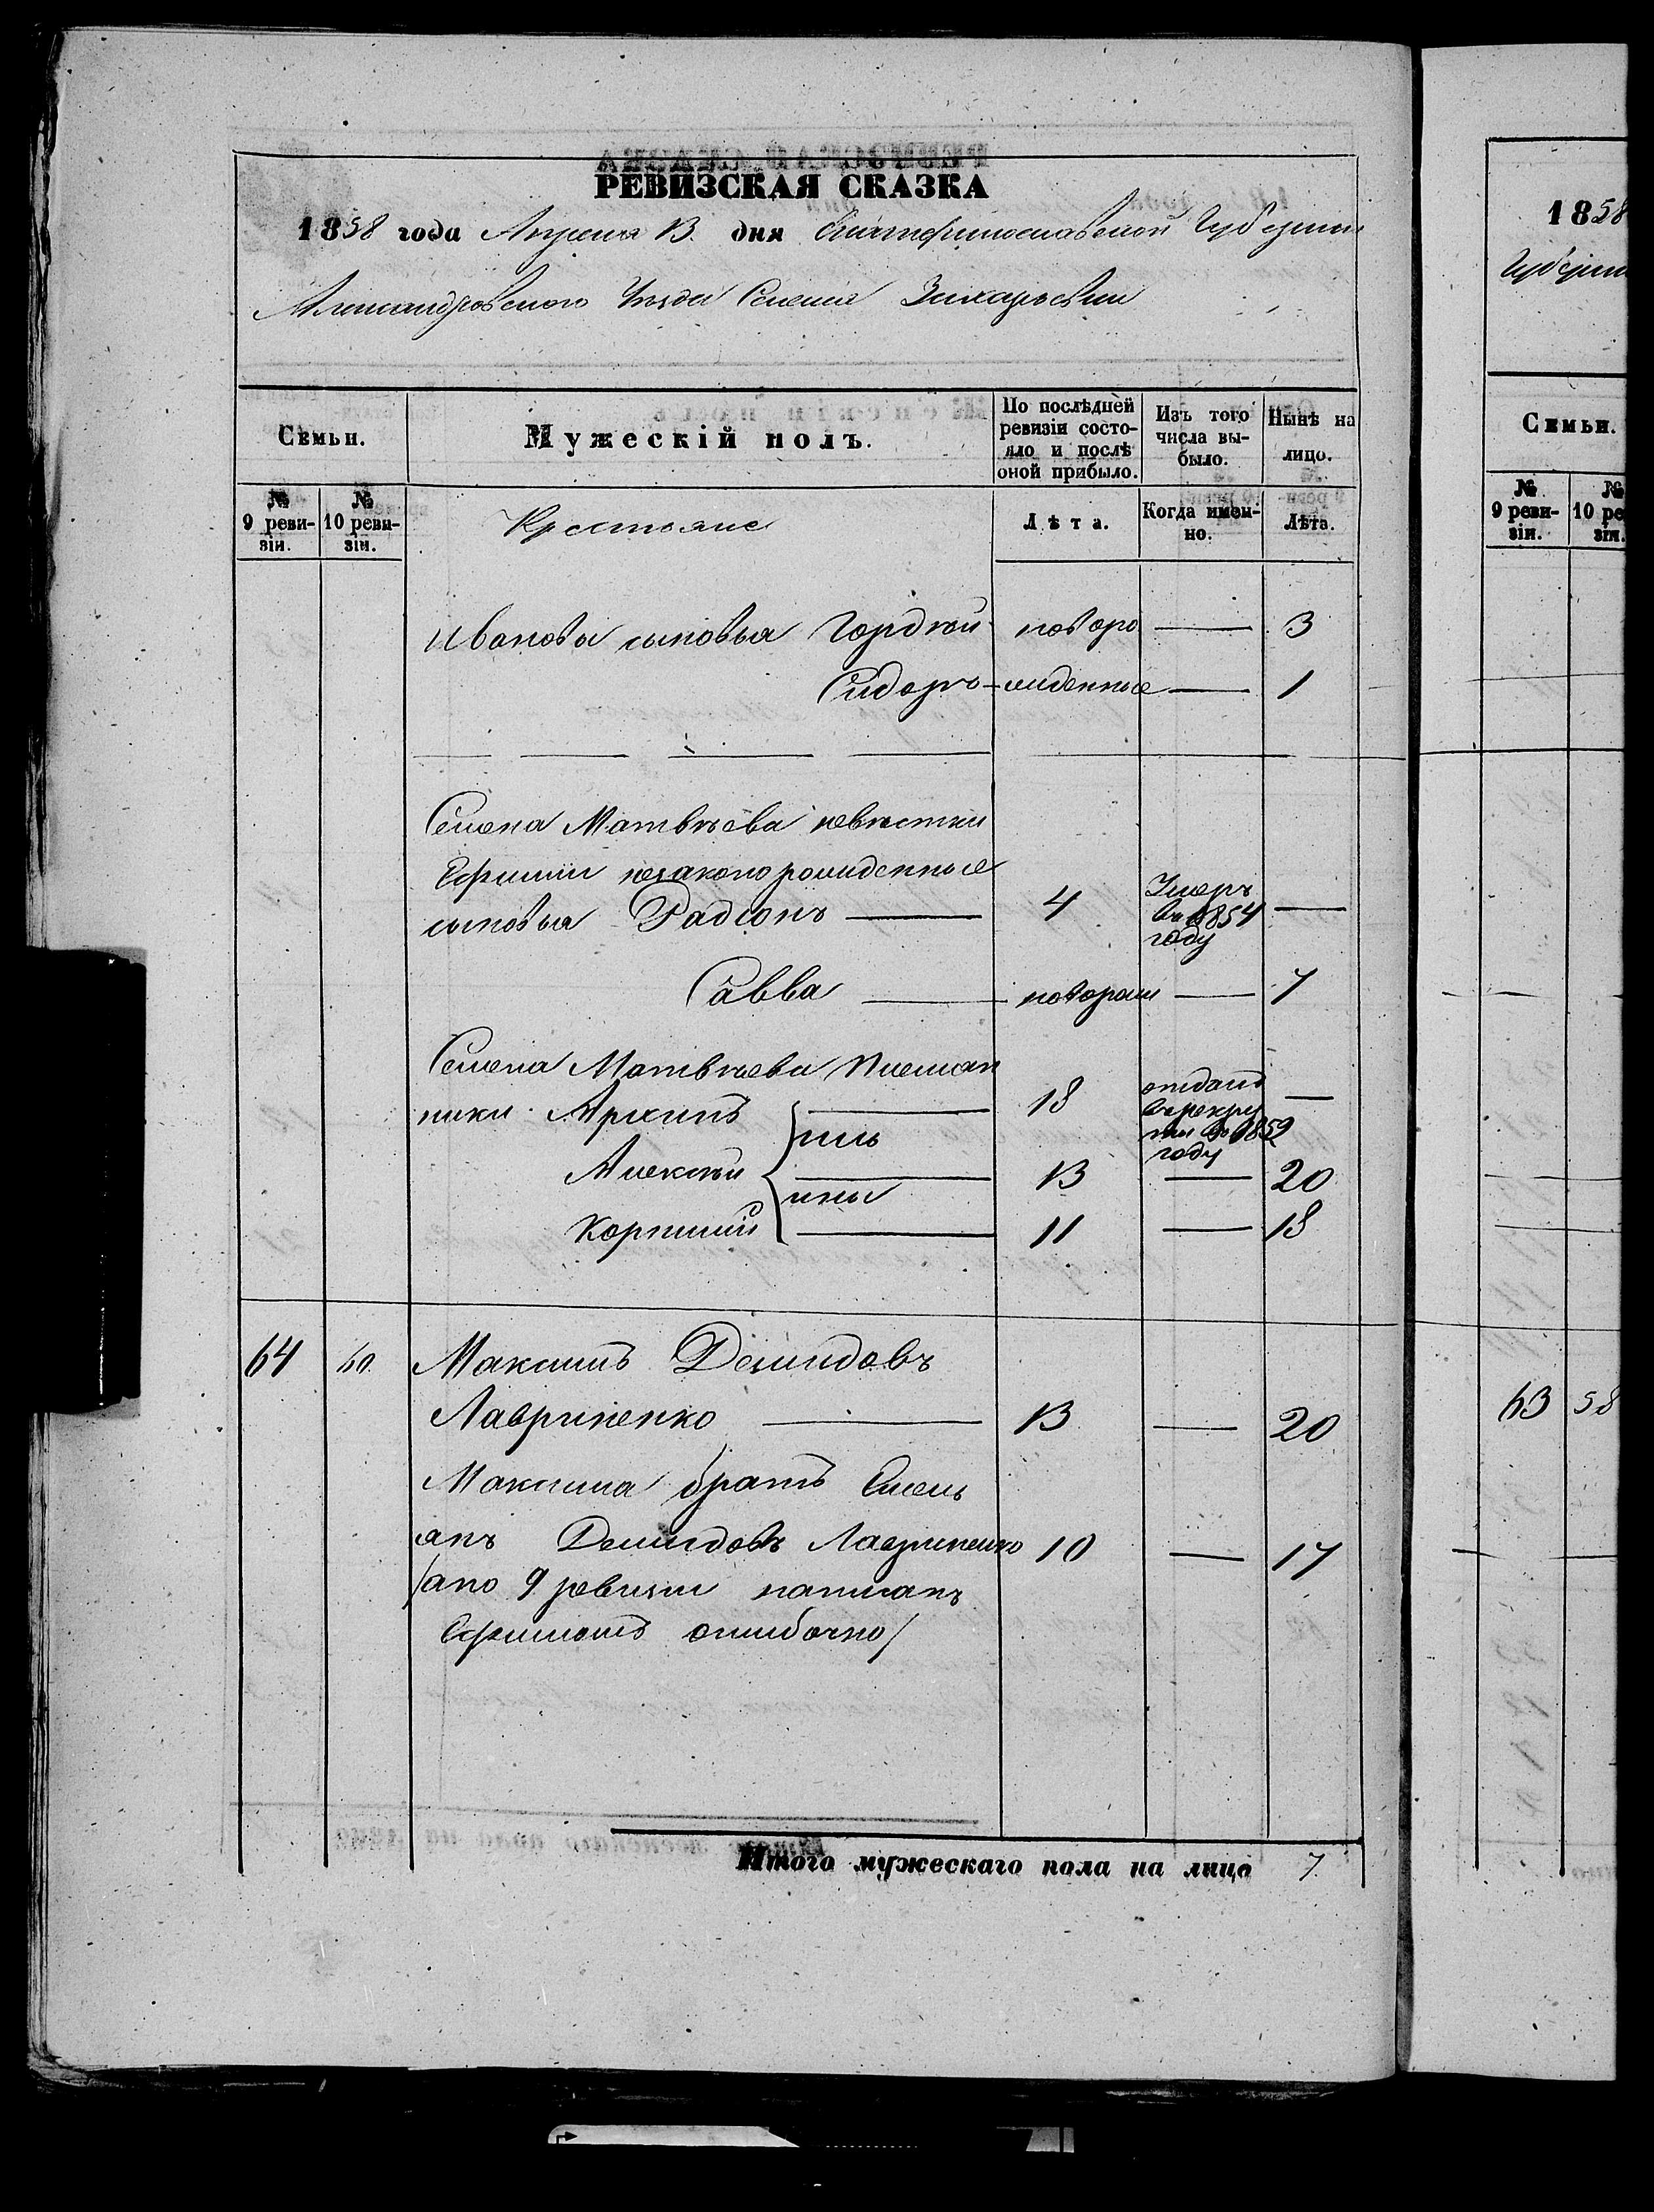 РЕВИЗСКАЯ СКАЗКА
1858 года Апреля 13 дня Екатеринославской Губернии
Александровскаго Уезда Селения Захарьевки
Семьи.
Мужескій полъ.
По послѣдней ревизіи состо-
яло и послѣ оной прибыло.
Изъ того числа вы-
было.
Нынѣ на лицо.
№ 9 реви-
зіи.
№ 10 реви-
зіи.
Крестьяне
Лѣта.
Когда имен-
но.
Лѣта.
Ивановы сыновья Гордѣй новоро — 3
Сидоръ — жденные — 1
Семена Матвѣева невѣстки
Ефиміи незаконорожденные
сыновья Радіонъ — 4 Умеръ въ 1854 году —
Савва — новорож — 7
Семена Матвѣева Племян
ники Архипъ — 18 отданъ в рекру ты въ 1852 году —
Иль
Алексѣй — 13 — 20
ины
Корнилій — 11 — 18
64 60. Максимъ Демидовъ
Лавриненко — 13 — 20
Максима братъ Емель
янъ Демидовъ Лавриненко 10 — 17
/а по 9 ревизіи написанъ
Ефимомъ ошибочно/
Итого мужескаго пола на лицо 7
1858
Губерни
Семьи.
№ 9 реви-
зіи.
№ 10 ре
зіи.
63 58